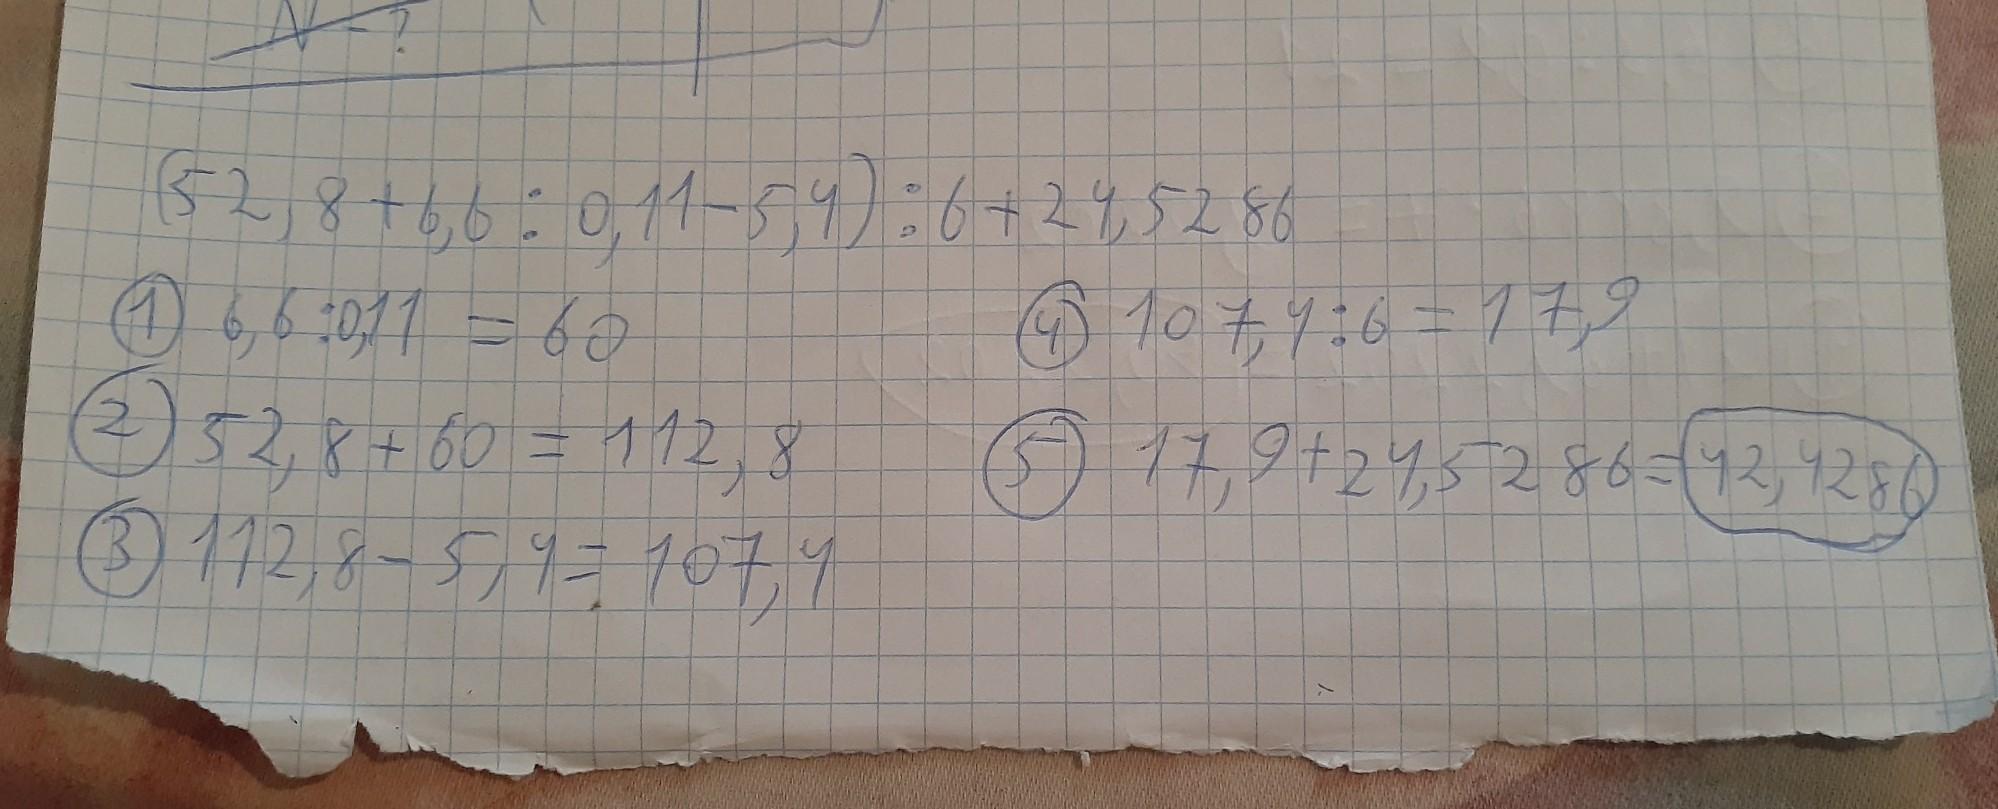 N - ?
(52,8+6,6:0,11-5,4):6+24,5286
① 6,6:0,11 = 60
② 52,8+60 = 112,8
③ 112,8-5,4=107,4
④ 107,4:6=17,9
⑤ 17,9+24,5286=42,4286